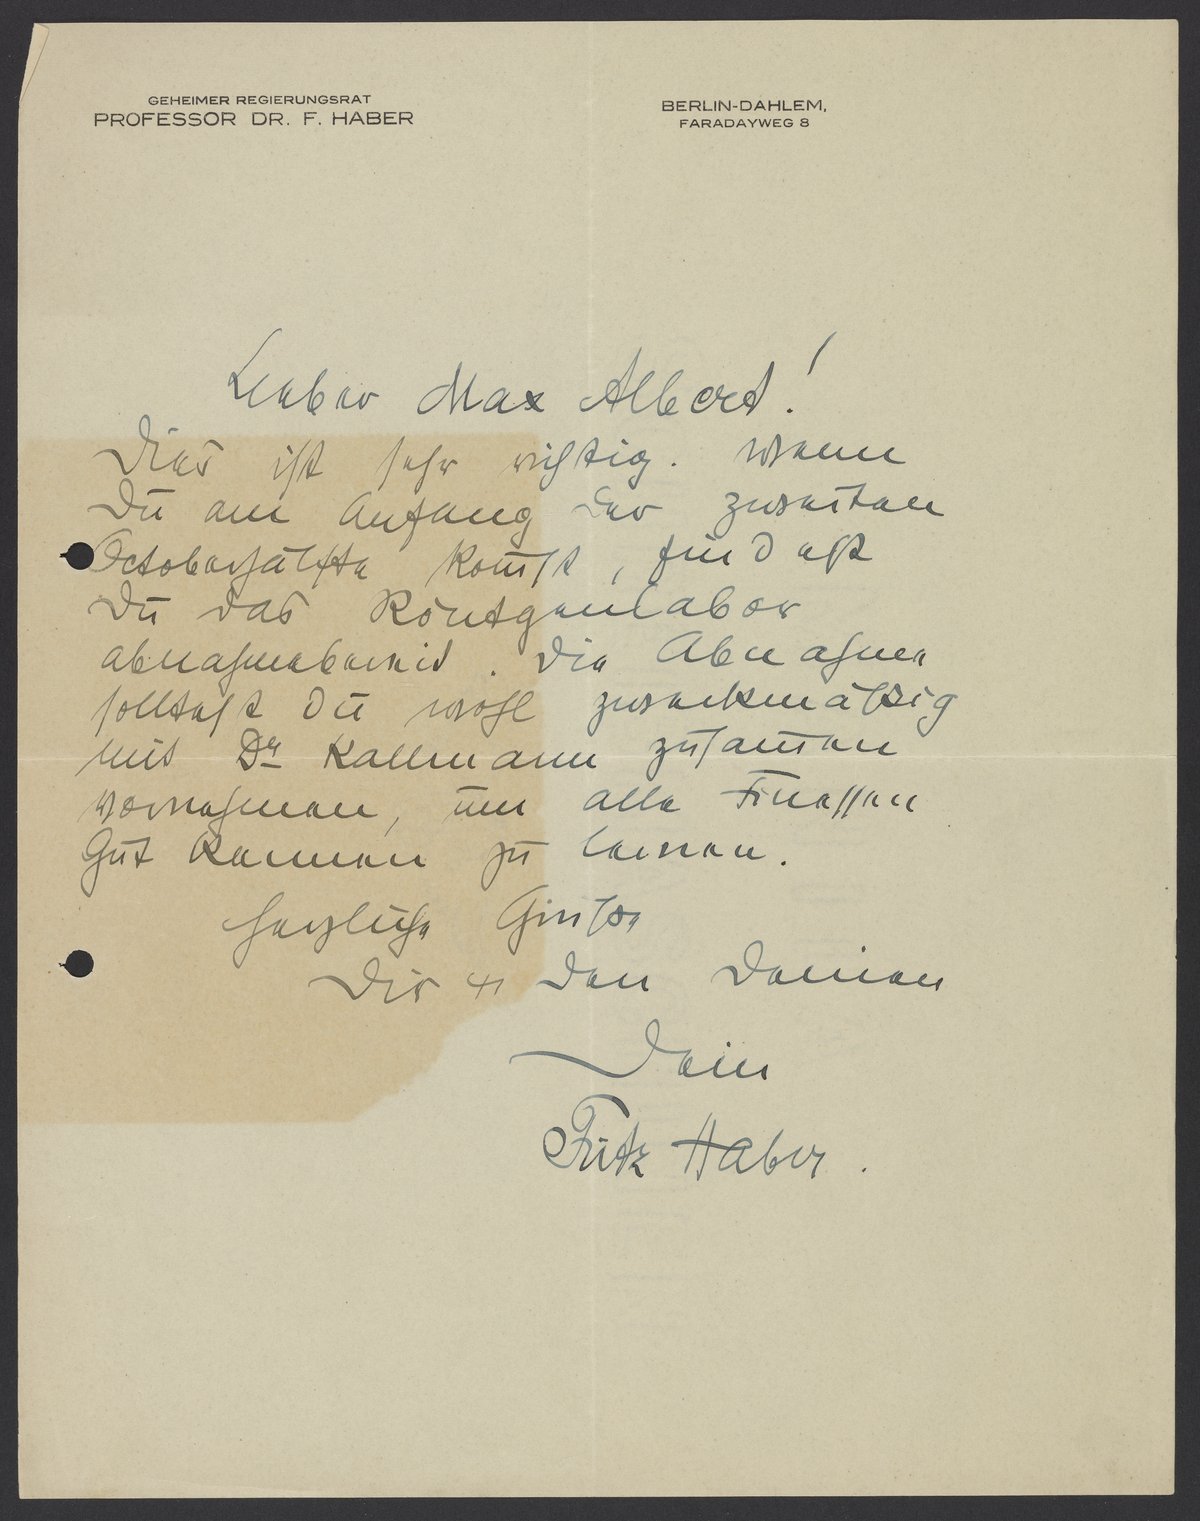 GEHEIMER REGIERUNGSRAT
PROFESSOR DR. F. HABER
BERLIN-DAHLEM,
FARADAYWEG 8
Lieber Max Albert!
Dies ist sehr richtig. Wenn
Du am Anfang der zweiten
Octoberhälfte kom̄st, findest
Du das Röntgenlabor
abnahmebereit. Die Abnahme
solltest Du wohl zweckmäßig
mit Dr Kallmann zusam̄en
vornehmen, um alle Finessen
gut kennen zu lernen.
Herzliche Grüße
Dir u den Deinen
Dein
Fritz Haber.